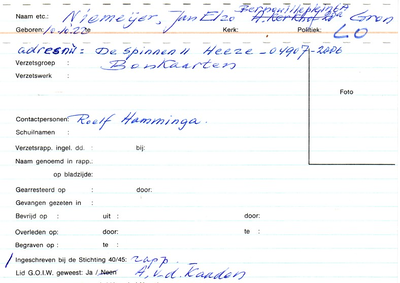 Naam etc.: Niemeijer, Jan Elzo A. Kerkhof Gron
Geboren: 10.10.22 te Kerk: Politiek: LO
adresnu: De spinnen 11 Heeze - 04907-2086
Verzetsgroep : Bonkaarten
Verzetswerk :
Foto
Contactpersonen: Roelf Hamminga.
Schuilnamen :
Verzetsrapp. ingel. dd. : bij:
Naam genoemd in rapp.:
op bladzijde:
Gearresteerd op : door:
Gevangen gezeten in :
Bevrijd op : uit : door:
Overleden op : door: te :
Begraven op : te :
Ingeschreven bij de Stichting 40/45: rapp.
Lid G.O.I.W. geweest: Ja / Neen A. v. d. Kaaden